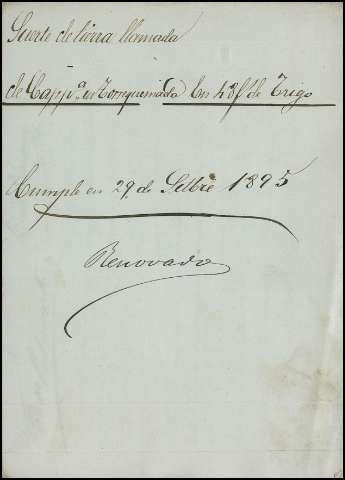 Suerte de tierra llamada
de Capp.ª en Torrequemada En 48 f.s de Trigo
Cumple en 29 de Setbre 1895
Renovado